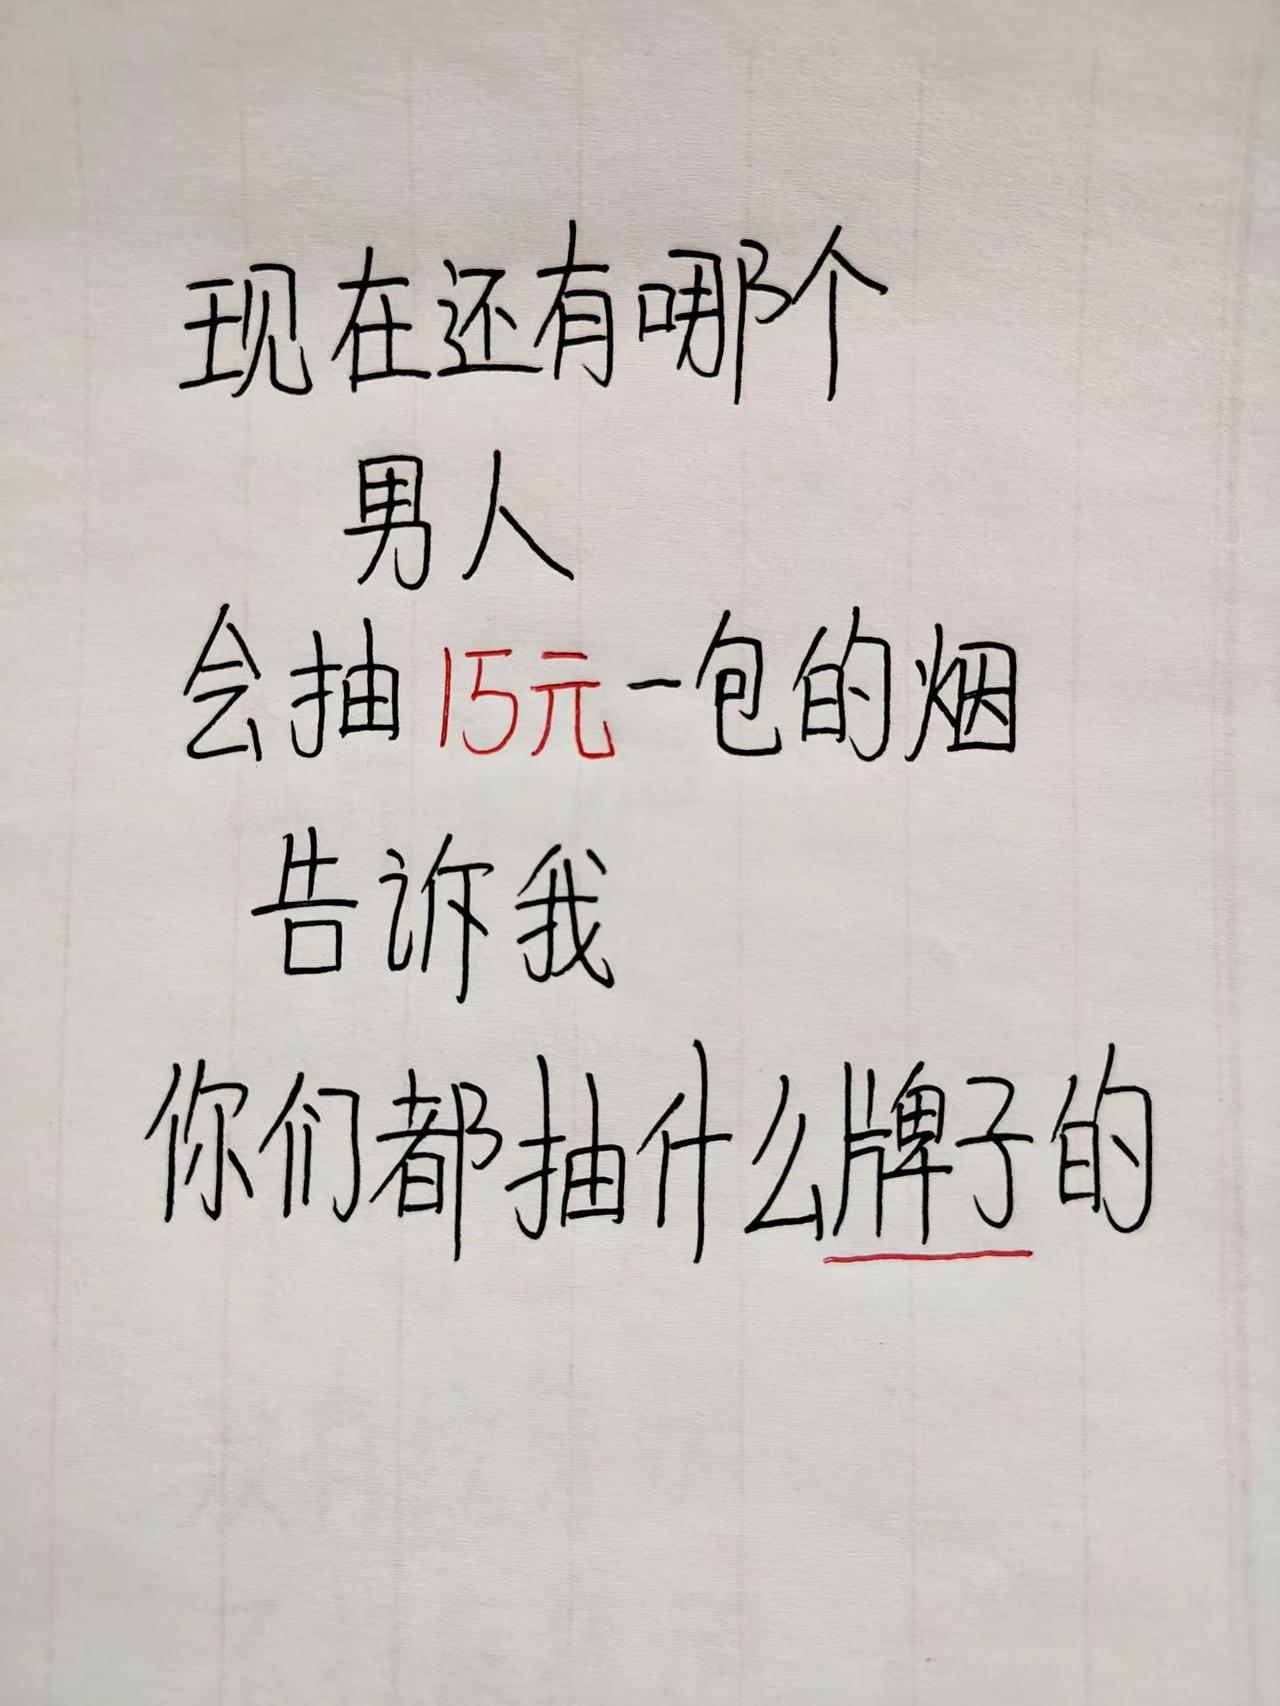 现在还有哪个
男人
会抽15元一包的烟
告诉我
你们都抽什么牌子的